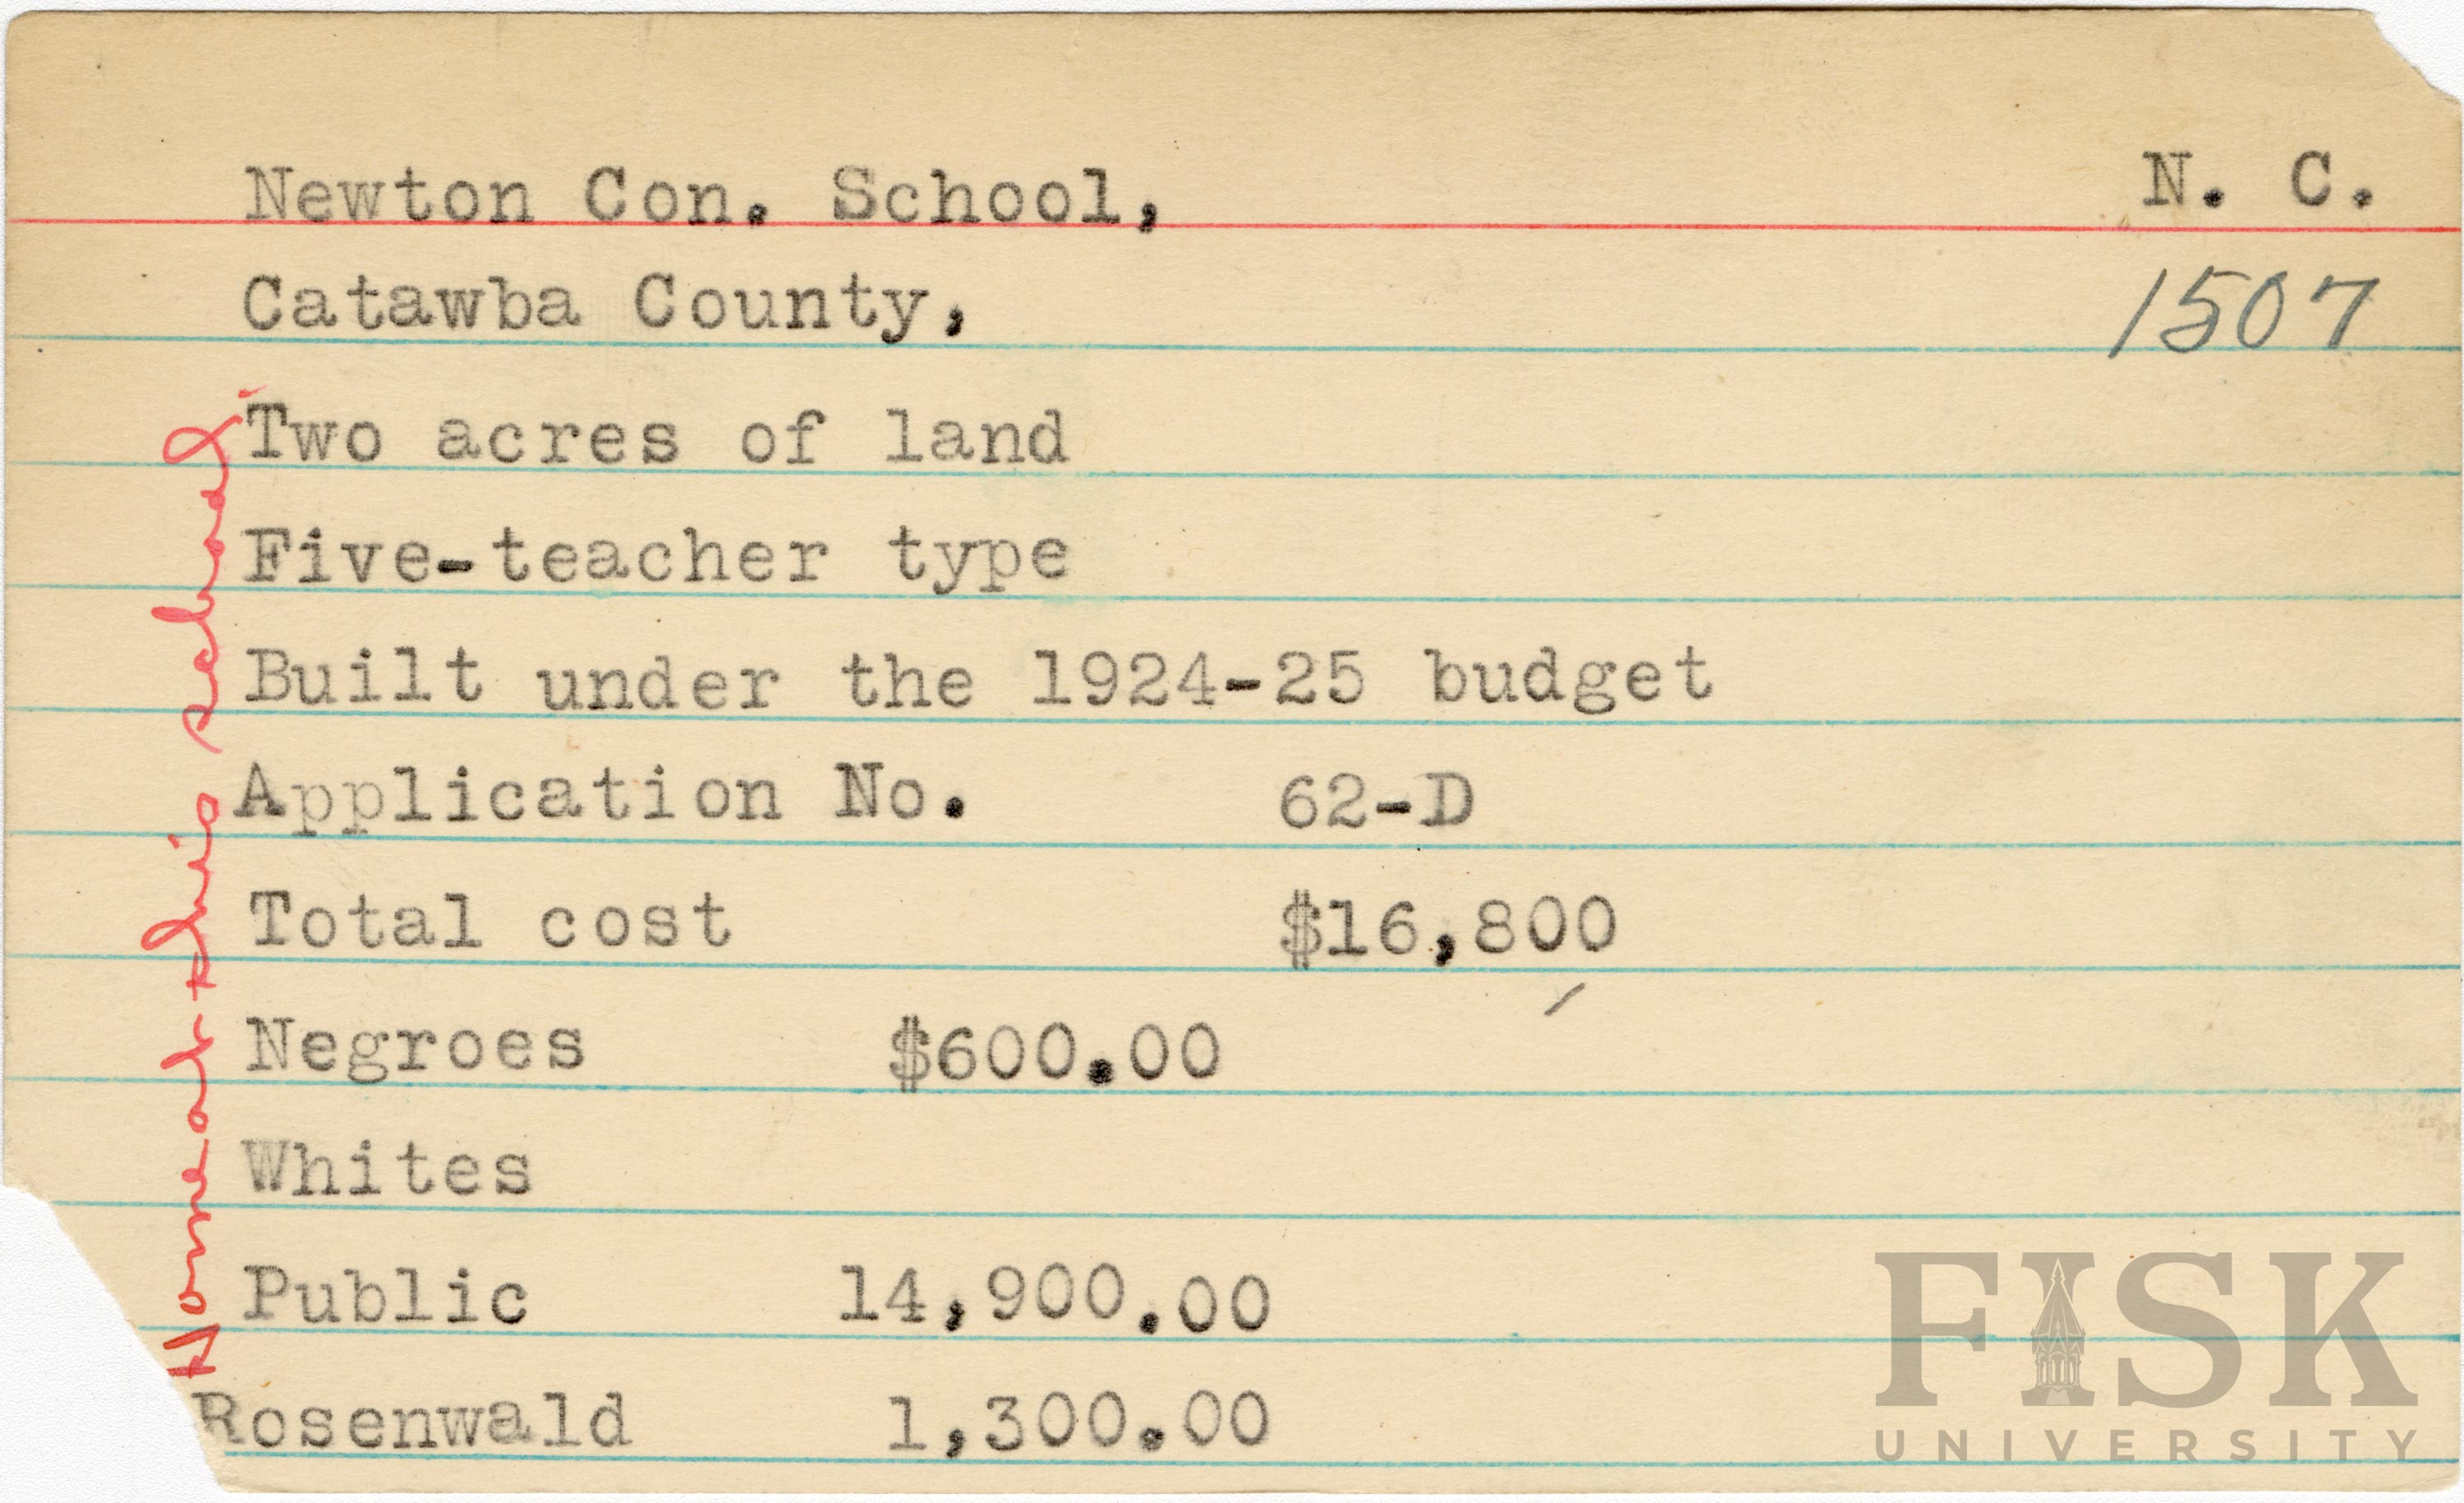 Newton Con. School, N. C.
Catawba County, 1507
Two acres of land
Five-teacher type
Built under the 1924-25 budget
Application No. 62-D
Total cost $16,800
Negroes $600.00
Whites
Public 14,900.00
Rosenwald 1,300.00
Home at this school.
FISK
UNIVERSITY